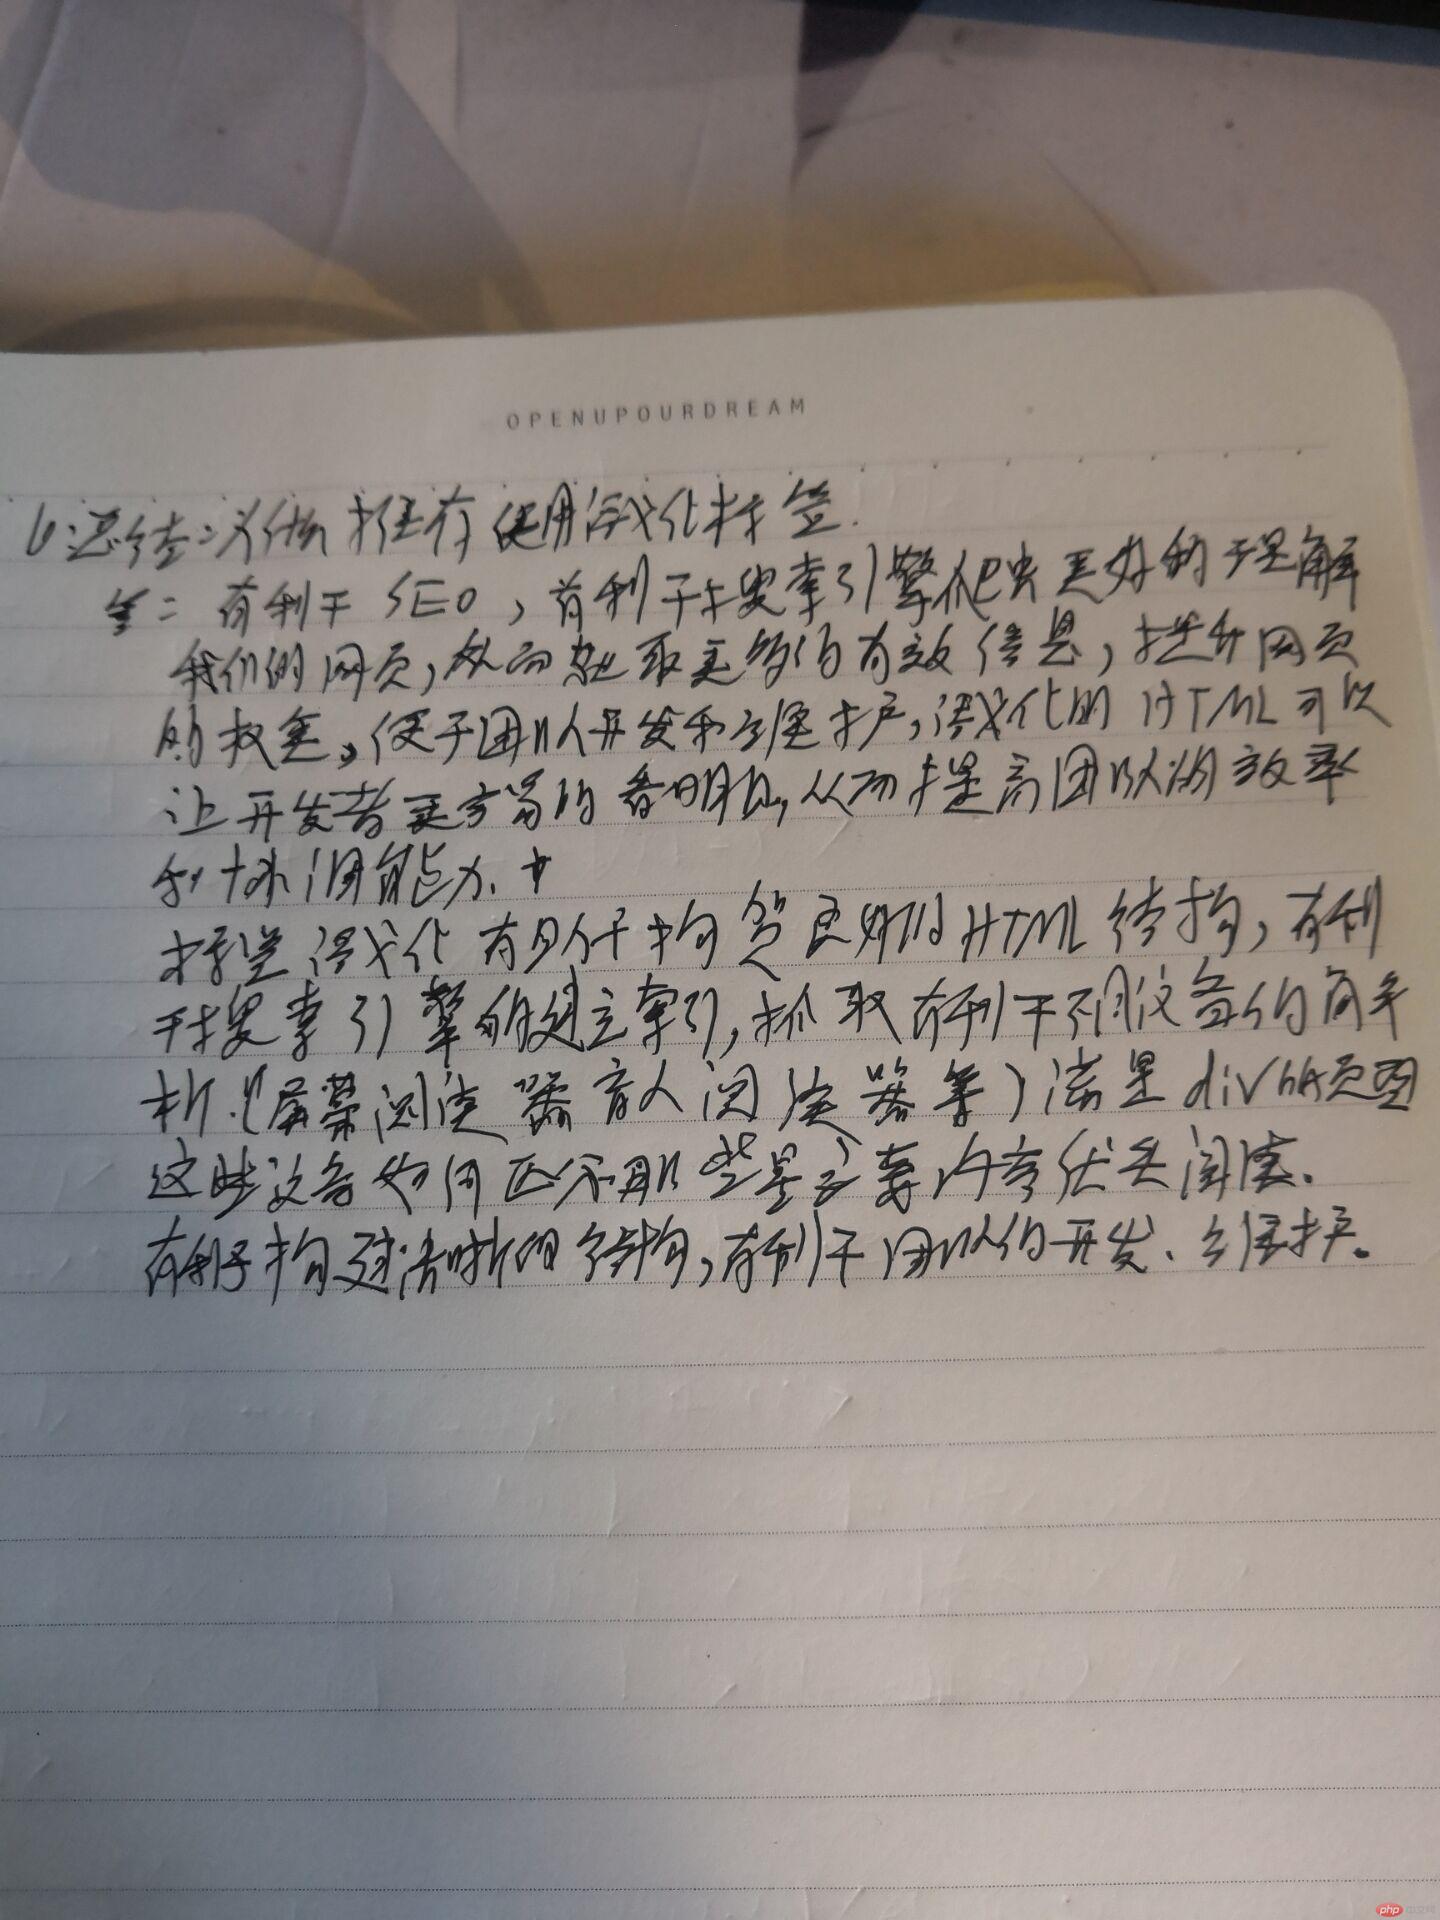 OPENUPOURDREAM
6.总结:为什么推存使用语义化标签.
答: 有利于SEO,有利于搜索引擎爬虫更好的理解
我们的网页,从而获取更多的有效信息,提升网页
的权重。便于团队开发和维护,语义化的HTML可以
让开发者更容易的看明白,从而提高团队的效率
和协调能力.
标签语义化有助于构架良好的HTML结构,有利
于搜索引擎的建立索引,抓取有利于不同设备的解
析.(屏幕阅读器盲人阅读器等)满是div的页面
这些设备如何区分那些是主要内容优先阅读.
有利于构建清晰的结构,有利于团队的开发、维护。
php 中文网